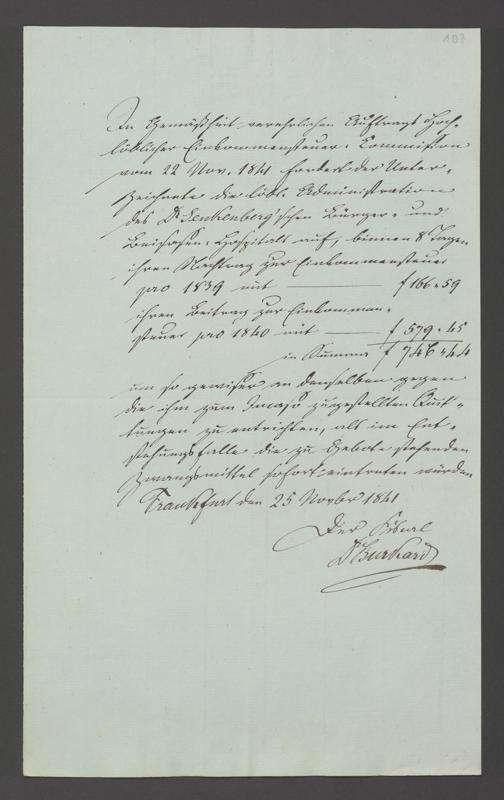 107
In Gemäßheit verehrlichen Auftrags Hoch-
löblicher Einkommensteuer-Commission
vom 22 Nov. 1841 fordert der Unter-
zeichnete die löbl. Administration
des Dr Senkenberg'schen Bürger- und
Beisassen-Hospitals auf, binnen 8 Tagen
ihren Nachtrag zur Einkommensteuer
pro 1839 mit — f 166 " 59
ihren Beitrag zur Einkommen-
steuer pro 1840 mit — f 579 " 45
in Summa f 746 " 44
um so gewisser an denselben gegen
die ihm zum Incasso zugestellten Quit-
tungen zu entrichten, als im Ent-
stehungsfalle die zu Gebote stehenden
Zwangsmittel sofort eintreten würden
Frankfurt den 25 Novbr 1841
Der Fiscal
Dr Burkard